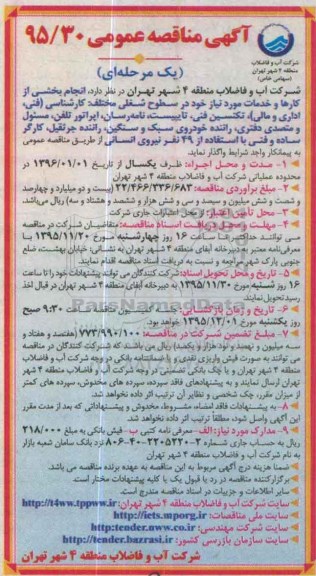 آگهی مناقصه عمومی ۹۵/۳۰
(یک مرحله‌ای)
شرکت آب و فاضلاب
منطقه ۴ شهر تهران
(سهامی خاص)
شرکت آب و فاضلاب منطقه ۴ شهر تهران در نظر دارد، انجام بخشی از
کارها و خدمات مورد نیاز خود در سطوح شغلی مختلف: کارشناسی (فنی،
اداری و مالی)، تکنسین فنی، تاییست، نامه‌رسان، اپراتور تلفن، مسئول
و متصدی دفتری، راننده خودروی سبک و سنگین، راننده جرثقیل، کارگر
ساده و فنی با استفاده از ۴۹ نفر نیروی انسانی از طریق مناقصه عمومی
به پیمانکار واجد شرایط واگذار نماید.
۱- مدت و محل اجراء: ظرف یکسال از تاریخ ۱۳۹۶/۰۱/۰۱ در
محدوده عملیاتی شرکت آب و فاضلاب منطقه ۴ شهر تهران
۲- مبلغ برآوردی مناقصه: ۲۲/۴۶۶/۳۳۶/۶۸۳ (بیست و دو میلیارد و چهارصد
و شصت و شش میلیون و سیصد و سی و شش هزار و ششصد و هشتاد و سه) ریال می‌باشد.
۳- محل تأمین اعتبار: از محل اعتبارات جاری شرکت
۴- مهلت و محل دریافت اسناد مناقصه: متقاضیان شرکت در مناقصه
می توانند حداکثر تا ساعت ۱۶ روز چهارشنبه مورخ ۱۳۹۵/۱۱/۲۰ با
معرفی‌نامه معتبر به دبیرخانه آبفای منطقه ۴ شهر تهران به نشانی: خیابان بهشت، ضلع
جنوبی پارک شهر مراجعه و نسبت به دریافت اسناد مناقصه اقدام نمایند.
۵- تاریخ و محل تحویل اسناد: شرکت کنندگان می توانند پیشنهادات خود را تا ساعت
۱۶ روز شنبه مورخ ۱۳۹۵/۱۱/۳۰ به دبیرخانه آبفای منطقه ۴ شهر تهران در قبال اخذ
رسید تحویل نمایند.
۶- تاریخ و زمان بازگشایی: جلسه کمیسیون مناقصه ساعت ۹:۳۰ صبح
روز یکشنبه مورخ ۱۳۹۵/۱۲/۰۱ خواهد بود.
۷- مبلغ تضمین شرکت در مناقصه: ۷۷۳/۹۹۰/۱۰۰ (هفتصد و هفتاد و
سه میلیون و نهصد و نود هزار و یکصد) ریال می باشد که شرکت کنندگان در مناقصه
می توانند به صورت فیش واریزی نقدی و یا ضمانتنامه بانکی در وجه شرکت آب و فاضلاب
منطقه ۴ شهر تهران و یا چک بانکی تضمینی در وجه شرکت آب و فاضلاب منطقه ۴ شهر
تهران ارسال نمایند و به پیشنهادهای فاقد سپرده، سپرده های مخدوش، سپرده های کمتر
از میزان مقرر، چک شخصی و نظایر آن ترتیب اثر داده نخواهد شد.
۸- به پیشنهادات فاقد امضاء، مشروط، مخدوش و پیشنهاداتی که بعد از مدت مقرر
این آگهی واصل شود، مطلقاً ترتیب اثر داده نخواهد شد.
۹- مدارک مورد نیاز: الف- معرفی نامه کتبی ب- فیش بانکی به مبلغ ۲۱۸/۰۰۰
ریال به حساب جاری شماره ۲-۲۲۰۵۲۲۰-۴۰-۸۰۶ نزد بانک سامان شعبه بازار
به نام شرکت آب و فاضلاب منطقه ۴ شهر تهران
ضمنا هزینه درج آگهی مربوط به این مناقصه به عهده برنده مناقصه می باشد.
برگزارکننده مناقصه در رد یا قبول یک یا کلیه پیشنهادات مختار است.
سایر اطلاعات و جزییات در اسناد مناقصه مندرج است.
سایت شرکت آب و فاضلاب منطقه ۴ شهر تهران: http://t4ww.tppww.ir
سایت ملی مناقصات: http://iets.mporg.ir
سایت شرکت مهندسی: http:tender.nww.co.ir
سایت سازمان بازرسی کشور: http://tender.bazrasi.ir
شرکت آب و فاضلاب منطقه ۴ شهر تهران